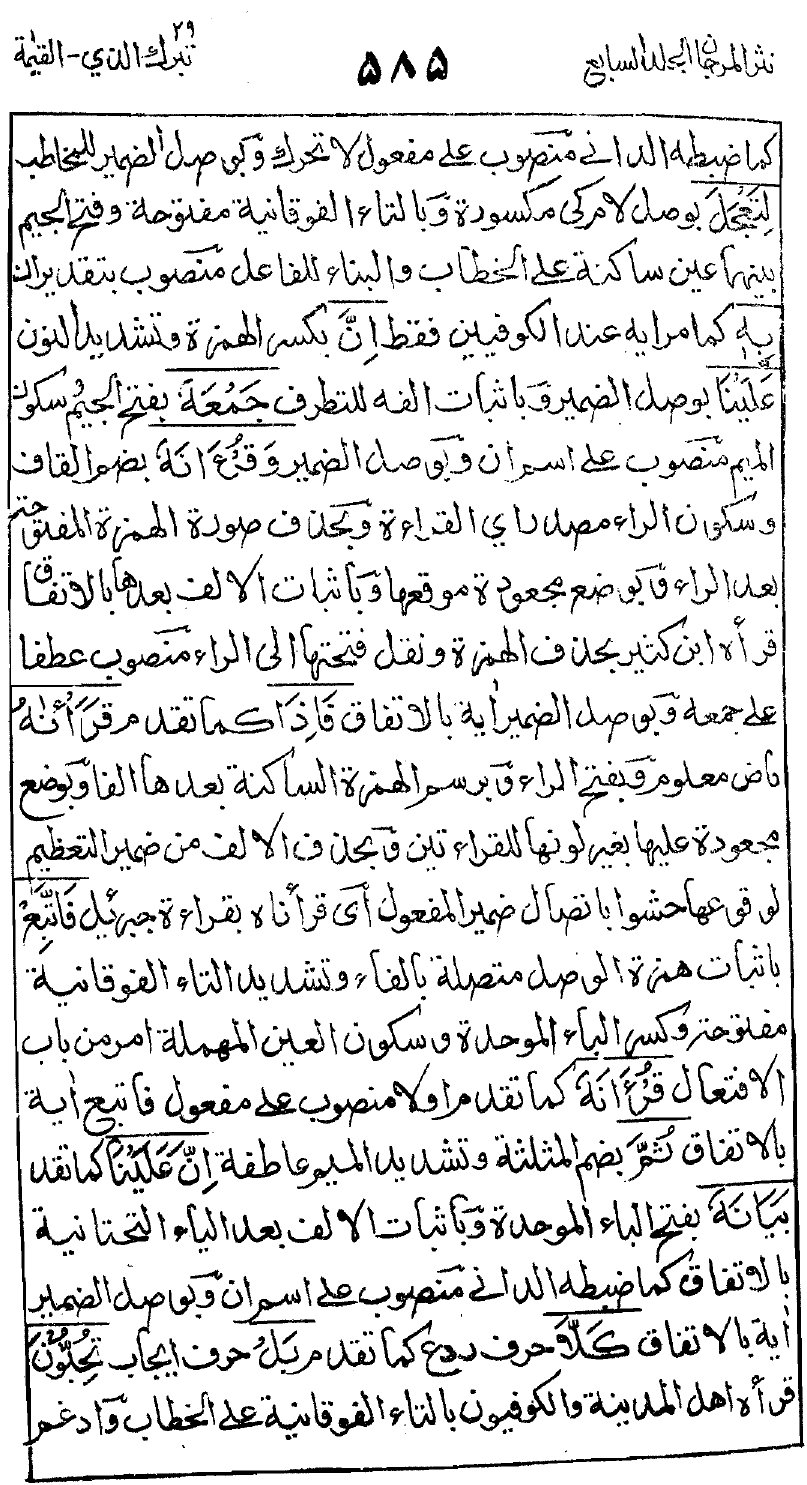 نثر المرجان المجلد السابع
٥٨٥
تبرك الذي - القيٰمة
٢٩
كما ضبطه الداني منصوب على مفعول لا تحرك وبوصل الضمير للمخاطب
لِتَعْجَلَ بوصل لام كي مكسورة وبالتاء الفوقانية مفتوحة وفتح الجيم
بينهما عين ساكنة على الخطاب والبناء للفاعل منصوب بتقدير ان
بِهٖ كما مر اية عند الكوفيين فقط اِنَّ بكسر الهمزة وتشديد النون
عَلَيْنَا بوصل الضمير وباثبات الفه للتطرف جَمْعَهٗ بفتح الجيم وسكون
الميم منصوب على اسم ان وبوصل الضمير وَقُرْءَانَهٗ بضم القاف
وسكون الراء مصدر اي القراءة وبحذف صورة الهمزة المفتوحة
بعد الراء وبوضع مجعودة موقعها وباثبات الالف بعدها بالاتفاق
قرأه ابن كثير بحذف الهمزة ونقل فتحتها الى الراء منصوب عطفا
على جمعه وبوصل الضمير اٰية بالاتفاق فَاِذَا كما تقدم قَرَأْنٰهُ
ماض معلوم وبفتح الراء وبرسم الهمزة الساكنة بعدها الفا وبوضع
مجعودة عليها بغير لونها للقراءتين وبحذف الالف من ضمير التعظيم
لوقوعها حشوا باتصال ضمير المفعول أى قرأناه بقراءة جبرئيل فَاتَّبِعْ
باثبات همزة الوصل متصلة بالفاء وتشديد التاء الفوقانية
مفتوحة وكسر الباء الموحدة وسكون العين المهملة امر من باب
الافتعال قُرْءَانَهٗ كما تقدم اولا منصوب على مفعول فاتبع اٰية
بالاتفاق ثُمَّ بضم المثلثة وتشديد الميم عاطفة اِنَّ عَلَيْنَا كما تقدم
بَيَانَهٗ بفتح الباء الموحدة وباثبات الالف بعد الياء التحتانية
بالاتفاق كما ضبطه الداني منصوب على اسم ان وبوصل الضمير
اٰية بالاتفاق كَلَّا حرف ردع كما تقدم بَلْ حرف ايجاب تُحِبُّوْنَ
قرأه اهل المدينة والكوفيون بالتاء الفوقانية على الخطاب وادغم